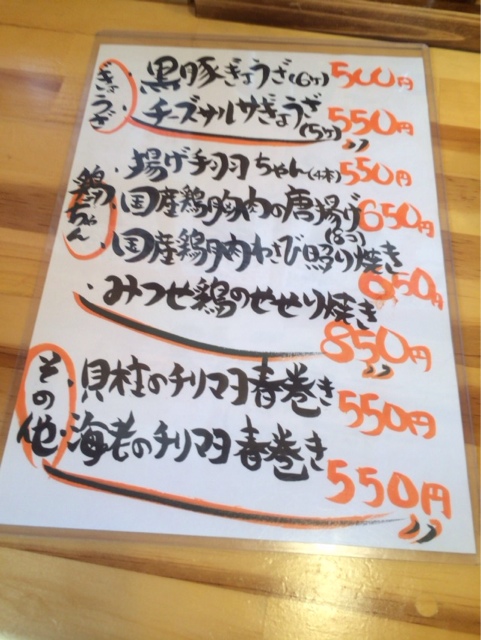 ぎょうざ
黒豚ぎょうざ(6ケ) 500円
チーズサルサぎょうざ(5ケ) 550円
鶏ちゃん
揚げ手羽ちゃん(4本) 550円
国産鶏胸肉の唐揚げ(8コ) 650円
国産鶏胸肉わさび照り焼き 650円
みつせ鶏のせせり焼き 850円
その他
貝柱のチリマヨ春巻き 550円
海老のチリマヨ春巻き 550円